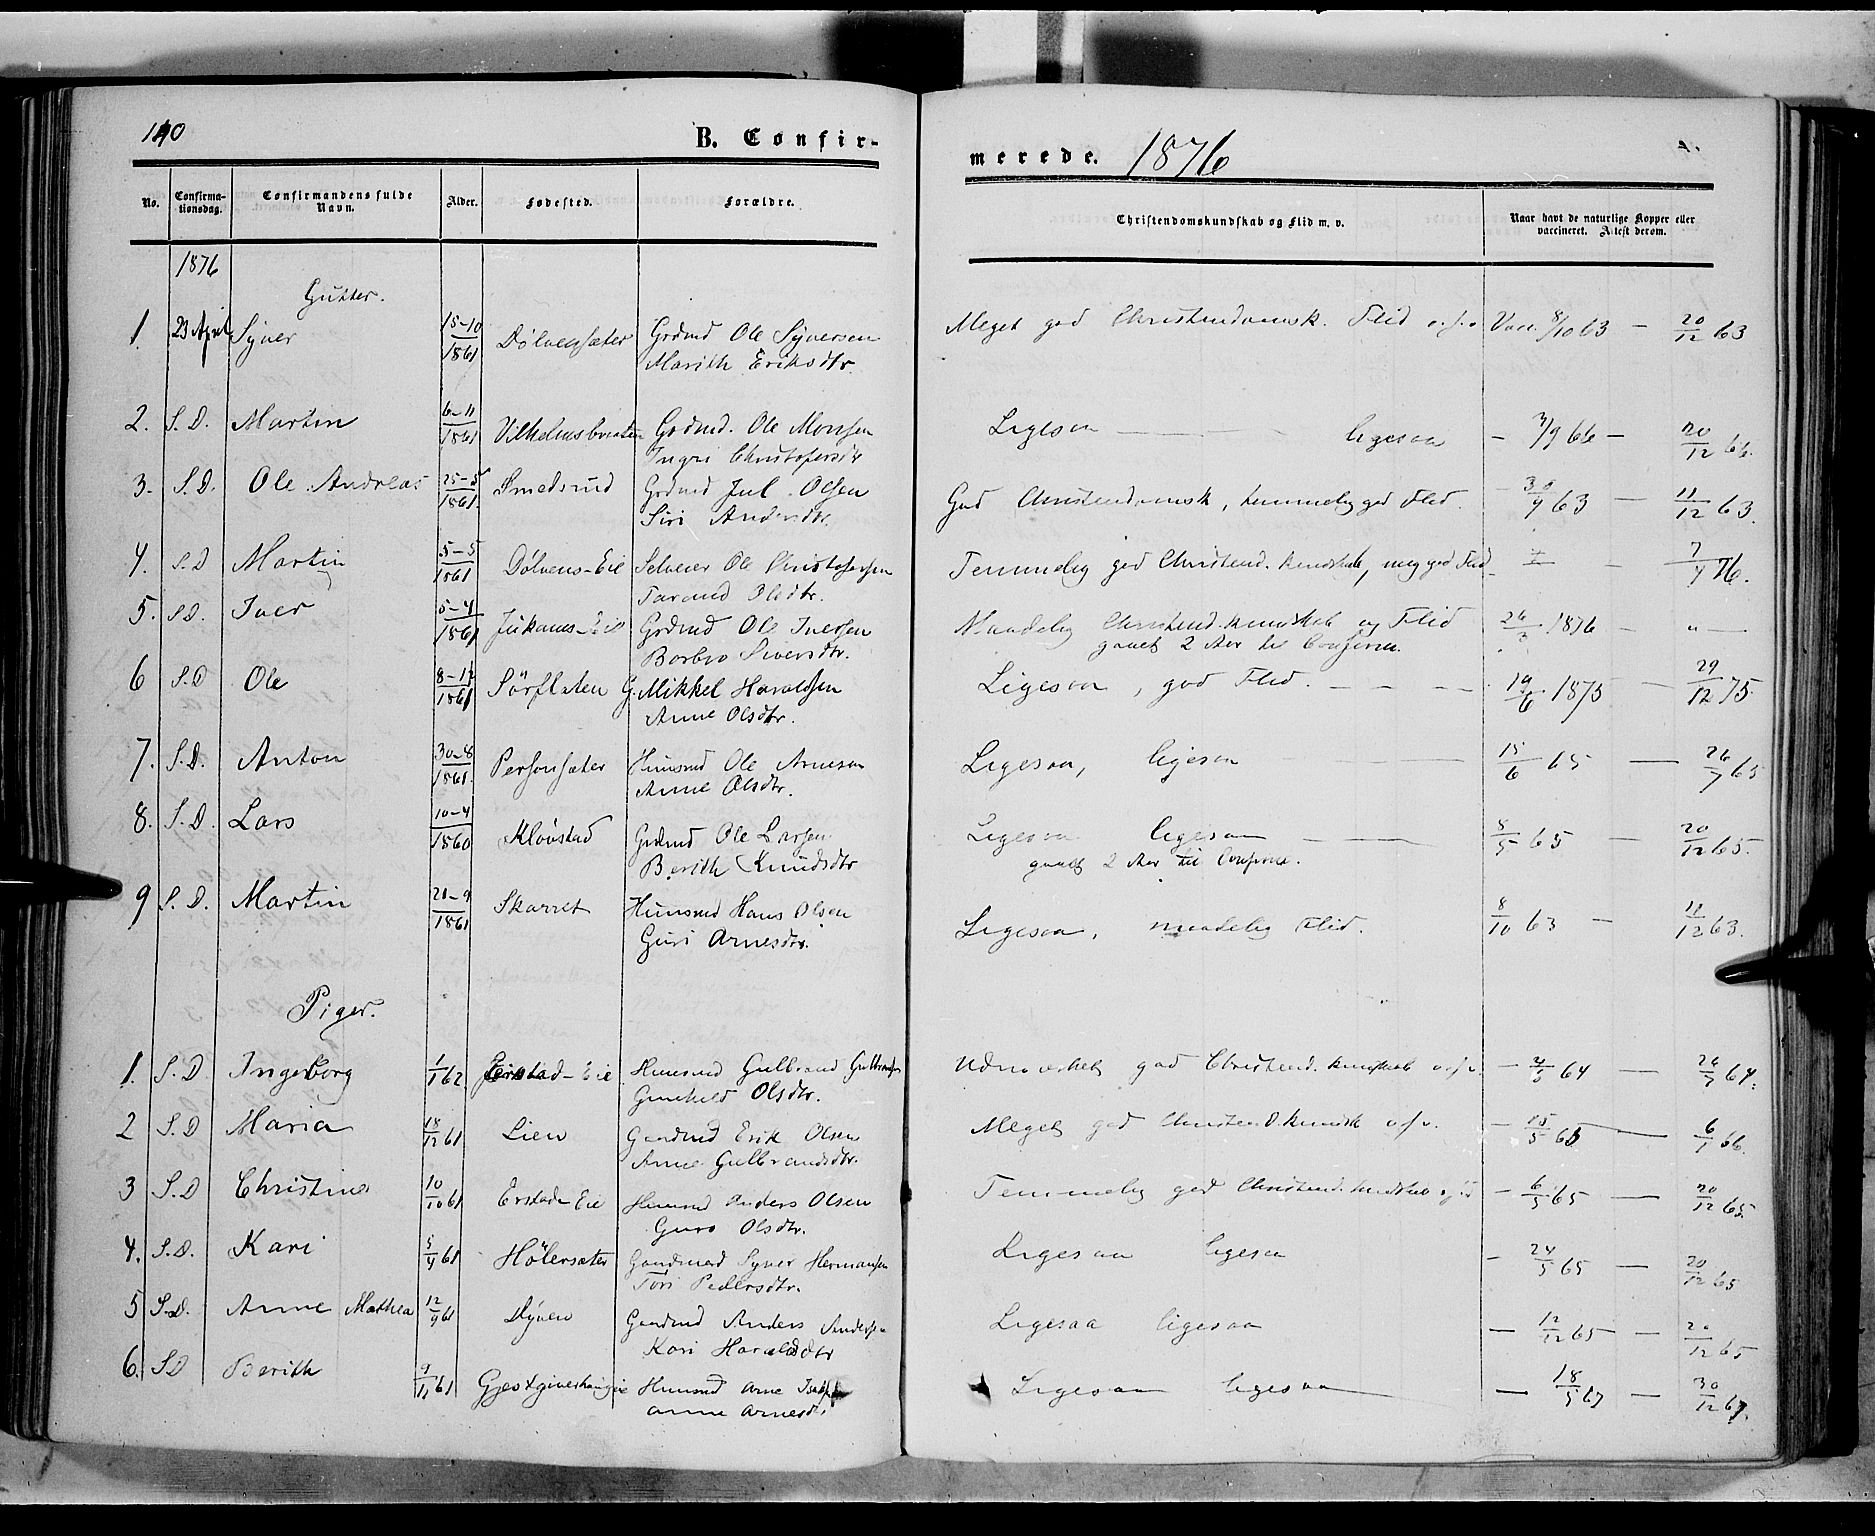 140
B. Confir-
No.
Confirma-
tionsdag.
Confirmandens fulde
Navn.
Alder.
Fødested.
Forældre.
1876
Gutter.
1. 23 April Syver 15-10 1861 Dølvensæter Grdmd Ole Syversen
Marith Eriksdtr.
2. S.D. Martin 6-11 1861 Vilhelmsbraaten Grdmd. Ole Monsen
Ingri Christofersdtr
3. S.D. Ole Andreas 25-5 1861. Smedsrud Grdmd Jul Olsen
Siri Andersdtr.
4. S.D Martin 5-5 1861 Dølvens-Eie Selveier Ole Christofersen
Olsdtr.
5. S.D. Iver 5-4 1861 Grdmd Ole Iversen
Barbro Siversdtr.
6 S.D Ole 8-12 1861 Sörflaten G. Mikkel Haraldsen
Anne Olsdtr.
7. S.D. Anton 30-8 1861. Personsæter Huusmd Ole Arnesen
Anne Olsdtr.
8. S.D. Lars 10-4 1860 Klöustad Grdmd Ole Larsen
Berith Knudsdtr
9 S.D. Martin 20-9 1861 Skarret Huusmd Hans Olsen
Guri Arnesdtr.
Piger.
1. S.D Ingeborg 1/1 62. Eie Huusmd Gulbrand
Gunhild Olsdtr.
2 S.D Maria 18/12 61 Lien Gaardmd Erik Olsen
Anne Gulbrandsdtr.
3 S.D Christine 10/10 61 Erstad-Eie Huusmd Anders Olsen
Guro Olsdtr.
4. S.D. Kari 5/9 61 Hölersæter Gaardmand Syver Hermansen
Töri Pedersdtr.
5 S.D. Anne Mathea 12/9 61 Dyven Gaardmd Anders Andersen
Kari Haraldsdtr
6. S.D Berith 9/11 61 Huusmd Arne
Anne Arnesdtr.
merede. 1876
Christendomskundskab og Flid m. v.
Naar havt de naturlige Kopper eller
vaccineret. Attest derom.
Meget god Christendomsk. Flid o.s.v. Vacc. 8/10 63 — 20/12 63
Ligesaa — ligesaa — 3/9 66 — 20/12 66.
God Christendomsk, temmelig god Flid. 30/9 63 — 11/12 63.
Temmelig god Christend. kundskab, meg god Flid — 7/4 76.
Maadelig Christend. kundskab og Flid 26/3 1876 — " —
gaaet 2 Aar til Conferm.
Ligesaa, god Flid. — 19/6 1875 — 29/12 75.
Ligesaa, ligesaa — 15/6 65 — 26/7 65
Ligesaa ligesaa — 8/5 65 — 20/12 65.
gaaet 2 Aar til Conferm.
Ligesaa, maadelig Flid. 8/10 63 — 11/12 63.
Udmærket god Christend. kundskab o.s.v. — 4/5 64 — 26/7 64.
Meget god Christend. kundsk o.s.v. — 15/5 65 — 6/1 66.
Temmelig god Christend. kundskab — 6/5 65 — 20/12 65.
Ligesaa ligesaa — 24/5 65 — 20/12 65
Ligesaa ligesaa — 12/12 65 — 20/12 65
Ligesaa ligesaa — 18/5 67 — 30/12 67.